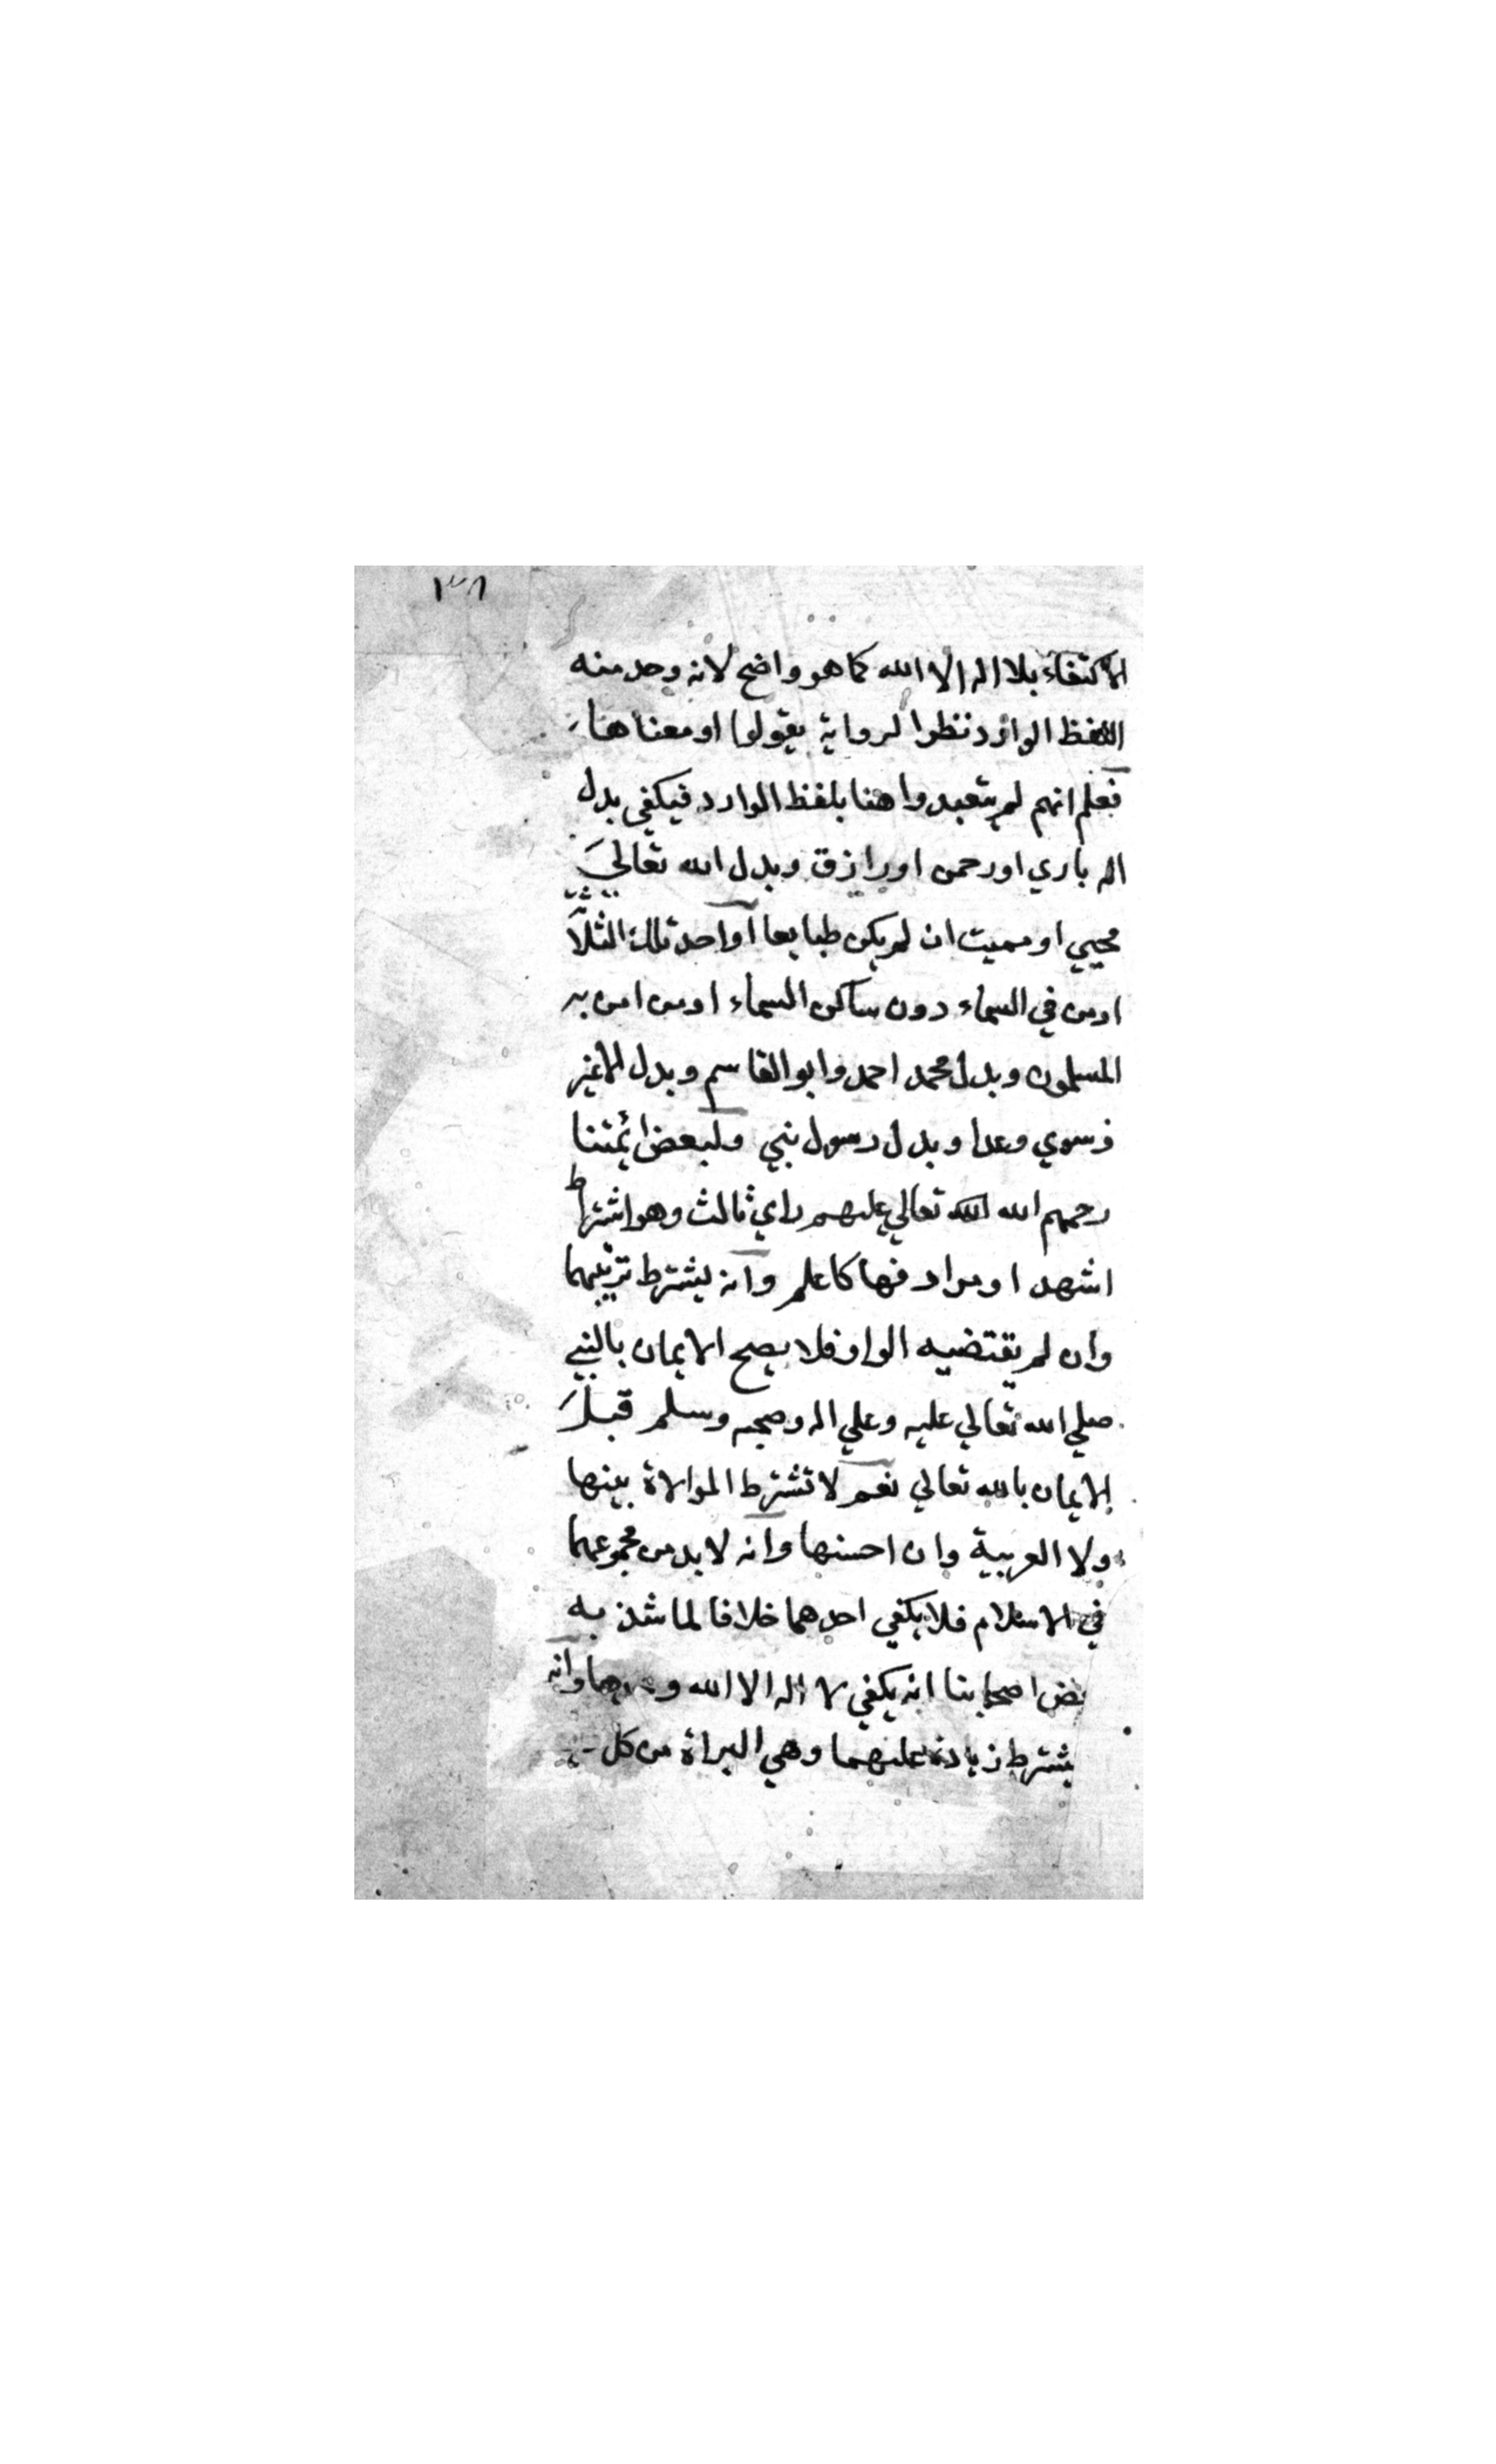 ١٣٨
الاكتفاء بلا اله الا الله كما هو واضح لانه وحد منه
اللفظ الوارد نظرا لرواية يقولوا او معناها
فعلم انهم لم يتعبدوا هنا بلفظ الوارد فيكفي بدل
اله باري او رحمن او رازق وبدل الله تعالي
محيي او مميت ان لم يكن طبايعا او احد تلك الثلاثة
او من في السماء دون ساكن السماء او من امن به
المسلمون وبدل محمد احمد وابو القاسم وبدل الا غير
وسوي وعدا وبدل رسول نبي ولبعض ائمتنا
رحمهم الله تعالي عليهم راي ثالث وهو اشتراط
اشهد او مرادفها كاعلم وانه يشترط ترتيبهما
وان لم يقتضيه الواو فلا يصح الايمان بالنبي
صلي الله تعالي عليه وعلي اله وصحبه وسلم قبل
الايمان بالله تعالي نعم لا تشترط الموالاة بينها
ولا العربية وان احسنها وانه لا بد من مجموعهما
في الاسلام فلا يكفي احدهما خلافا لما شذ به
بعض اصحابنا انه يكفي لا اله الا الله وانه
يشترط زيادة عليهما وهي البراة من كل